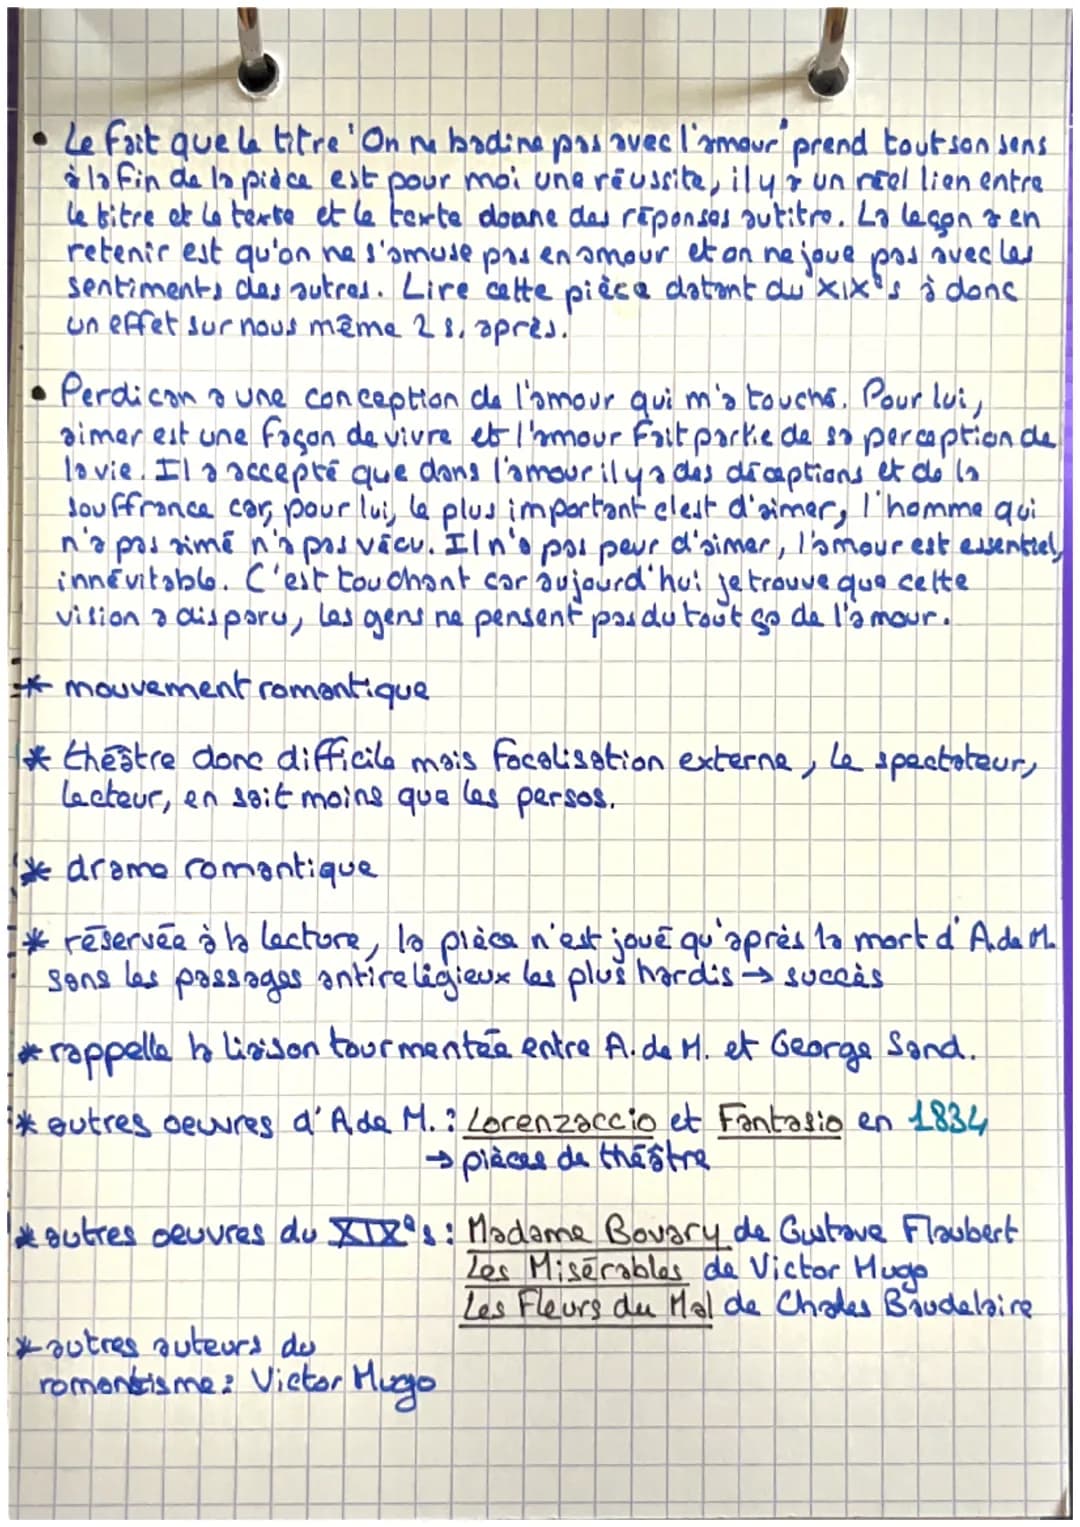 • Le fait que le titre "On ne badine pas avec l'amour" prend tout son sens
à la fin de la pièce est pour moi une réussite, il y a un réel lien entre
le titre et le texte et le texte donne des réponses au titre. La leçon a en
retenir est qu'on ne s'amuse pas en amour et on ne joue pas avec les
sentiments des autres. Lire cette pièce datant du XIXe s à donc
un effet sur nous même 2 s. après.
• Perdican a une conception de l'amour qui m'a touché. Pour lui,
aimer est une façon de vivre et l'amour fait partie de sa perception de
la vie. Il a accepté que dans l'amour il y a des déceptions et de la
souffrance car, pour lui, le plus important c'est d'aimer, l'homme qui
n'a pas aimé n'a pas vécu. Il n'a pas peur d'aimer, l'amour est essentiel,
innévitable. C'est touchant car aujourd'hui je trouve que cette
vision a disparu, les gens ne pensent pas du tout ça de l'amour.
* mouvement romantique
* théâtre donc difficile mais focalisation externe, le spectateur,
lecteur, en sait moins que les persos.
* drame romantique
* réservée à la lecture, la pièce n'est joué qu'après la mort d'A.de M.
sans les passages antireligieux les plus hardis → succès
* rappelle la liaison tourmentée entre A. de M. et George Sand.
* autres oeuvres d'A de M. : Lorenzaccio et Fantasio en 1834
→ pièces de théâtre
* autres oeuvres du XIXe s : Madame Bovary de Gustave Flaubert
Les Misérables de Victor Hugo
Les Fleurs du Mal de Chales Baudelaire
* autres auteurs du
romantisme : Victor Hugo